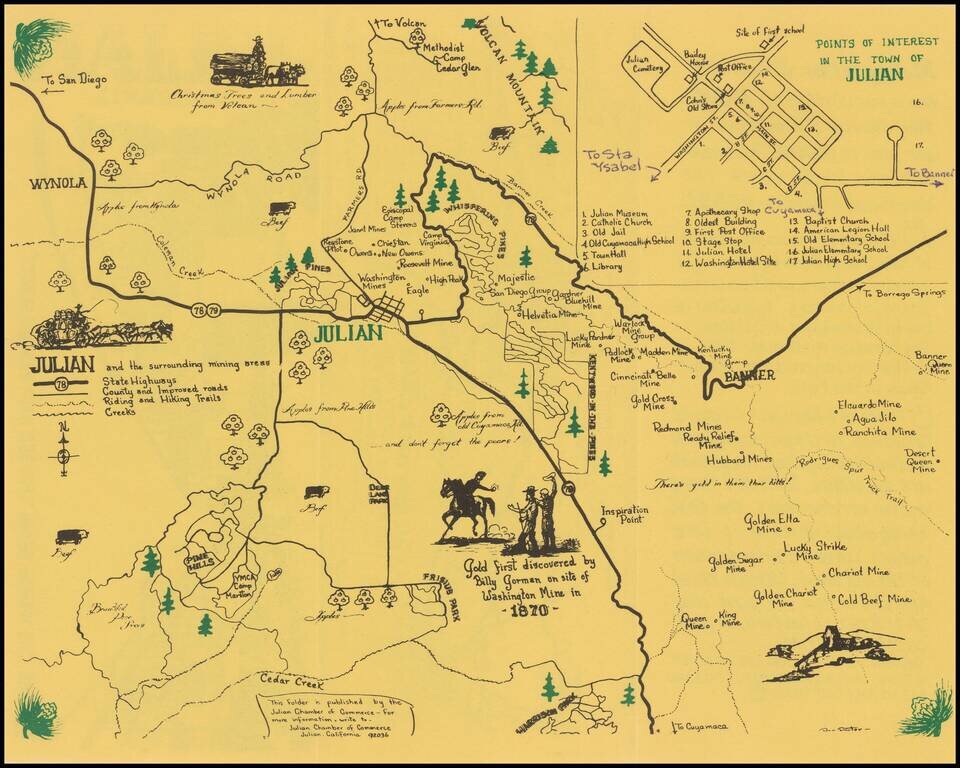 To Volcan
Methodist
Camp
Cedar Glen
VOLCAN MOUNTAIN
To San Diego
Christmas Trees and Lumber
from Volcan
Apples from Farmers Rd.
Beef
WYNOLA
WYNOLA ROAD
FARMERS RD
Apples from Wynola
Beef
Coleman Creek
Banner Creek
78
WHISPERING PINES
Episcopal
Camp
Stevens
Camp
Virginia
Juant Mines
Keystone
Pilot
Chieftan
Owens
New Owens
Roosevelt Mine
High Peak
Washington
Mines
Eagle
PINES
Majestic
San Diego Group
Gardner
Bluehill
Mine
Helvetia Mine
Warlock
Mine
Group
Lucky Pardner
Mine
Padlock
Mine
Madden Mine
Kentucky
Mine
Group
Cinncinati Belle
Mine
BANNER
78 79
JULIAN
KENTWOOD-IN-THE-PINES
Gold Cross
Mine
Redmond Mines
Ready Relief
Mine
Hubbard Mines
There's gold in them thar hills!
To Borrego Springs
Banner
Queen
Mine
Elcuardo Mine
Agua Jilo
Ranchita Mine
Desert
Queen
Mine
Rodrigues Spur
Truck Trail
Golden Ella
Mine
Golden Sugar
Mine
Lucky Strike
Mine
Chariot Mine
Golden Chariot
Mine
Cold Beef Mine
Queen
Mine
King
Mine
JULIAN and the surrounding mining areas
78 State Highways
County and Improved roads
Riding and Hiking Trails
Creeks
N
S
Apples from Pine Hills
Apples from
old Cuyamaca Rd.
and don't forget the pears!
DEER
LAKE
PARK
Beef
Beef
PINE
HILLS
YMCA
Camp
Marston
FRISUS PARK
Apples
78
Inspiration
Point
Gold first discovered by
Billy Gorman on site of
Washington Mine in
- 1870 -
Cedar Creek
HARRISON PARK
To Cuyamaca
This folder is published by the
Julian Chamber of Commerce - For
more information - write to -
Julian Chamber of Commerce
Julian, California 92036
POINTS OF INTEREST
IN THE TOWN OF
JULIAN
Site of First school
Julian
Cemetery
Bailey
House
Post Office
Cohn's
Old Store
WASHINGTON ST.
MAIN ST.
B ST.
C ST.
To Sta
Ysabel
To Banner
To
Cuyamaca
1. Julian Museum
2. Catholic Church
3. Old Jail
4. Old Cuyamaca High School
5. Town Hall
6. Library
7. Apothecary Shop
8. Oldest Building
9. First Post Office
10. Stage Stop
11. Julian Hotel
12. Washington Hotel Site
13. Baptist Church
14. American Legion Hall
15. Old Elementary School
16. Julian Elementary School
17. Julian High School